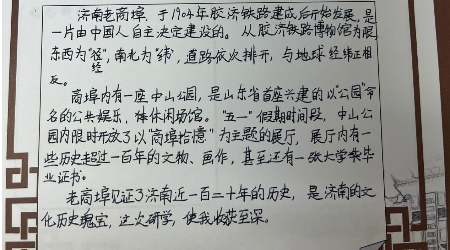 济南老商埠,于1904年胶济铁路建成后开始发展,是
一片由中国人自主决定建设的。从胶济铁路博物馆为限,
东西为“径”,南北为“纬”,道路依次排开,与地球经纬正相
经
反。
商埠内有一座中山公园,是山东省首座兴建的以“公园”命
名的公共娱乐、体休闲场馆。“五一”假期时间段,中山公
园内限时开放了以“商埠拾憶”为主题的展厅,展厅内有一
些历史超过一百年的文物、画作,甚至还有一张大学柴毕
业证书。
老商埠见证了济南近一百二十年的历史,是济南的文
化历史瑰宝,这次研学,使我收获至深。